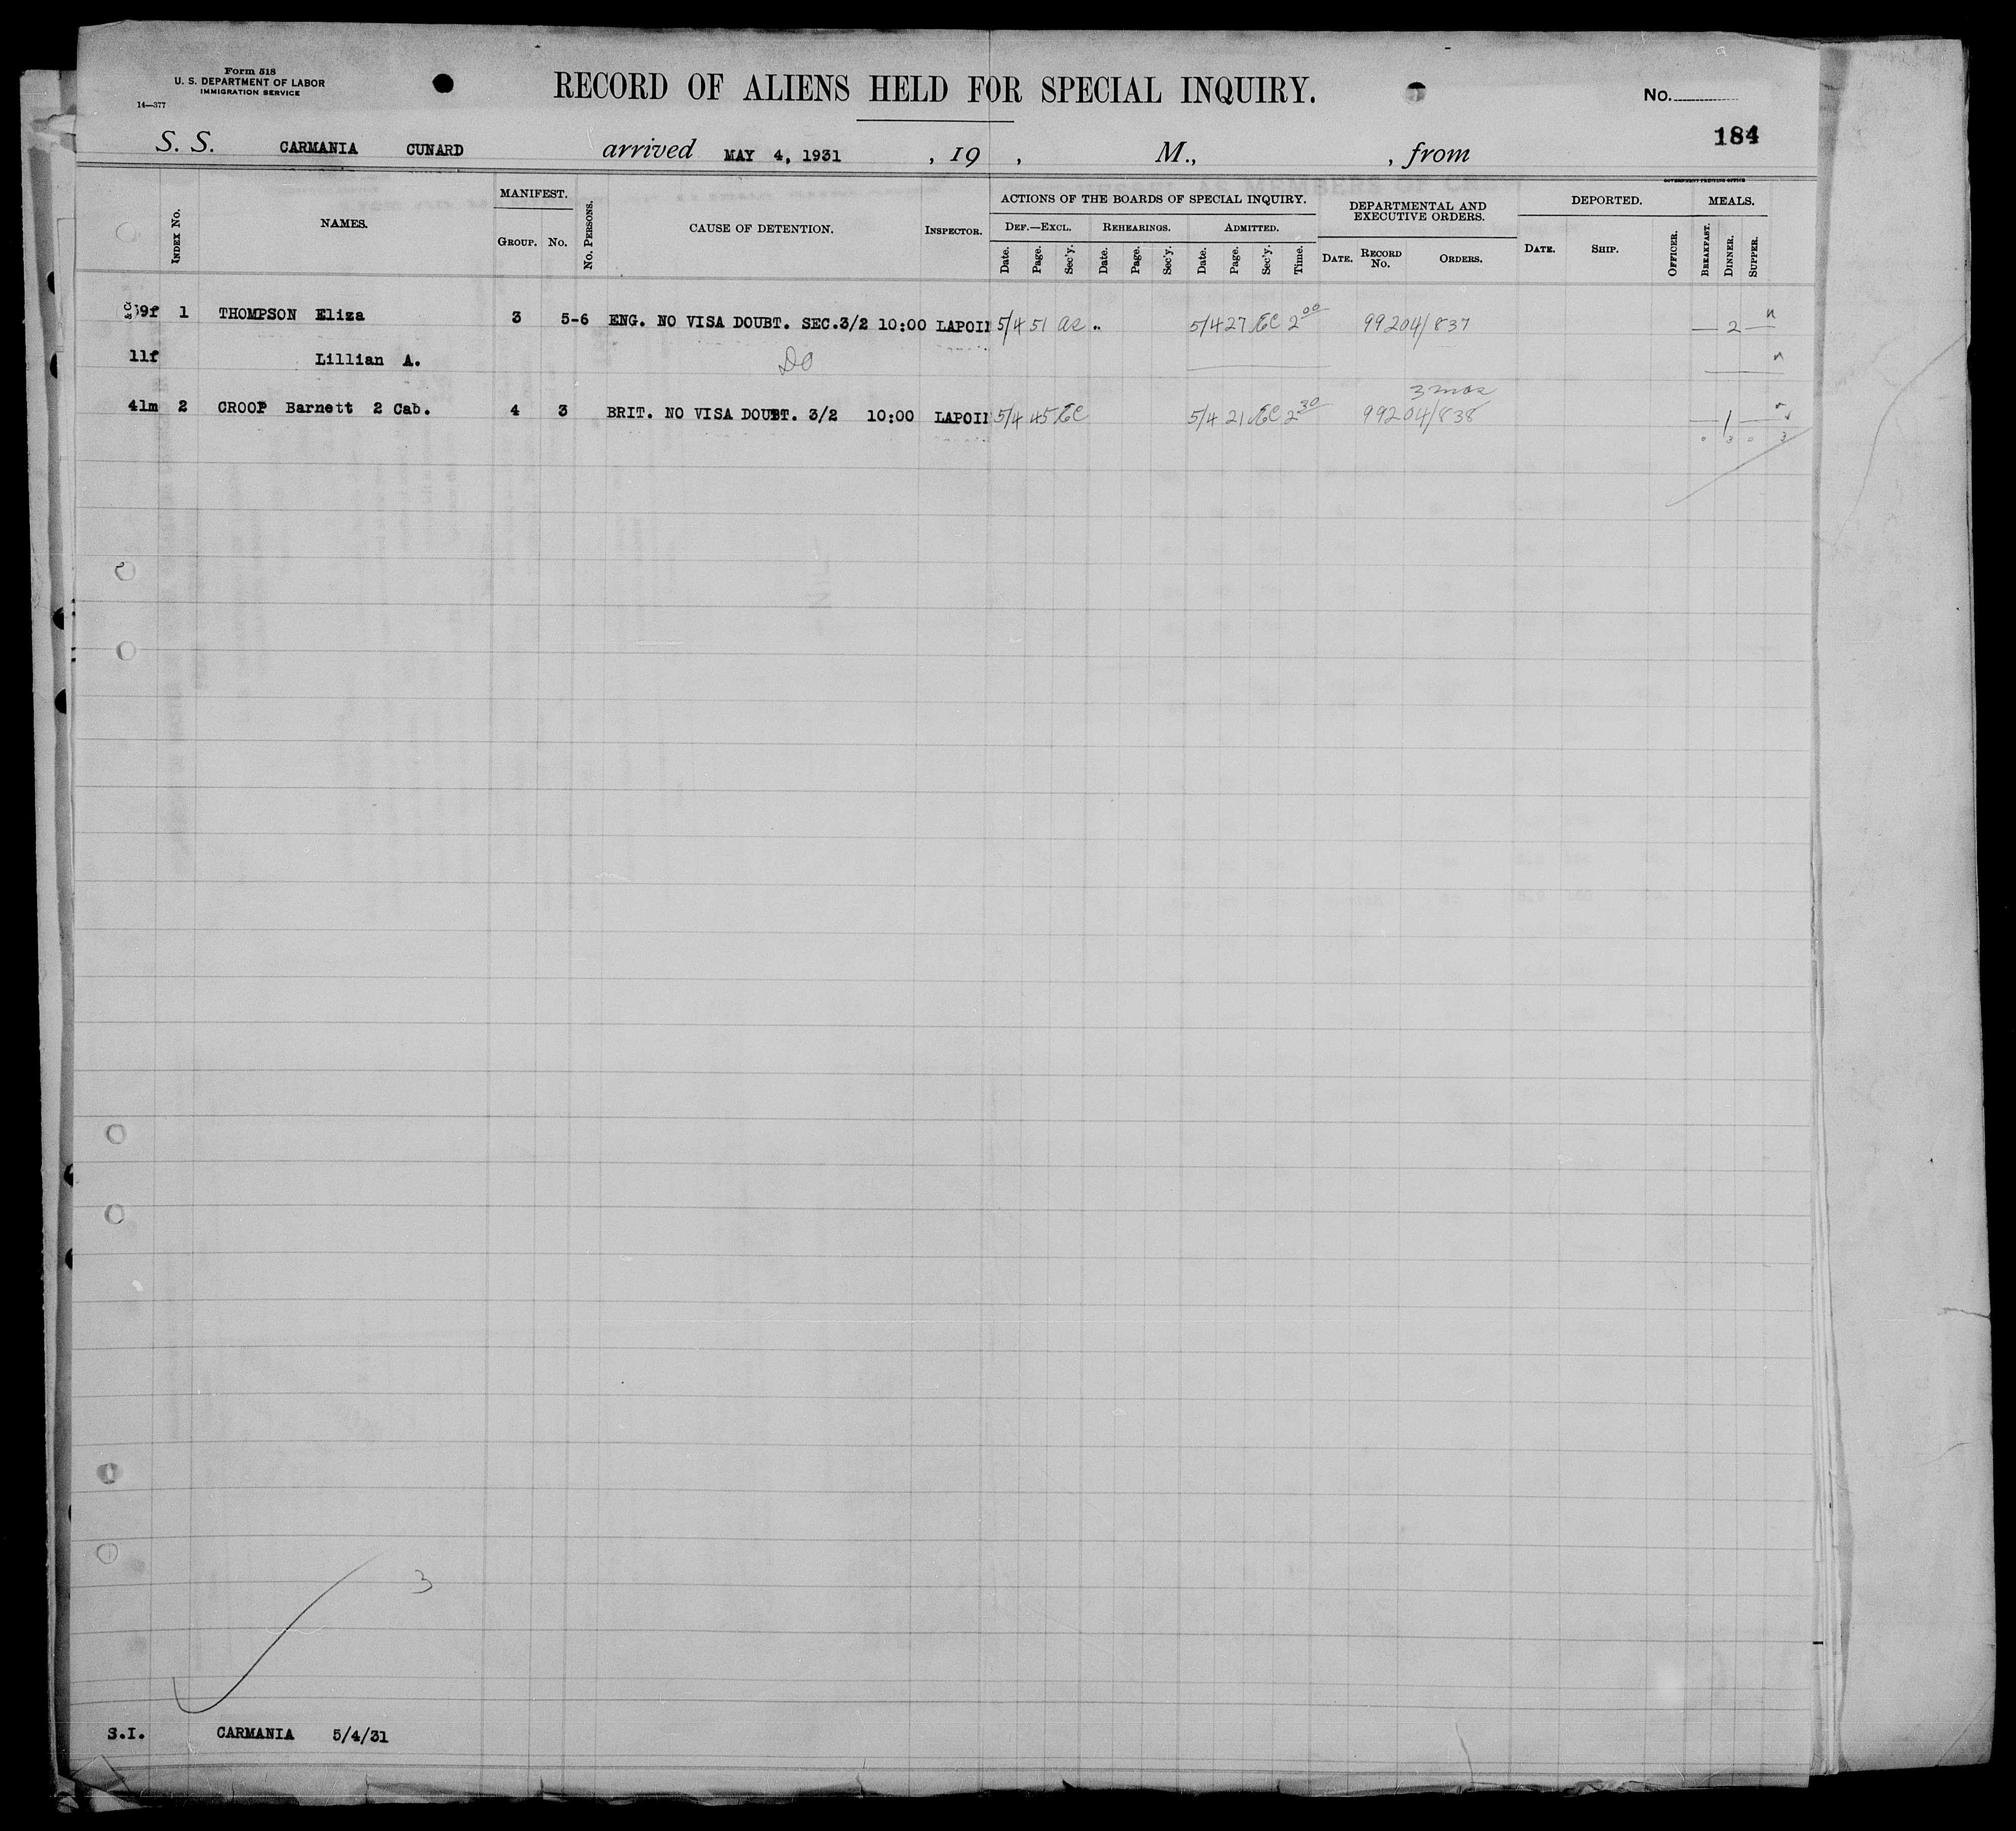 Form 518
U. S. DEPARTMENT OF LABOR
IMMIGRATION SERVICE
14—377
RECORD OF ALIENS HELD FOR SPECIAL INQUIRY.
No.
184
S. S. CARMANIA CUNARD arrived MAY 4, 1931 , 19 , M., , from
GOVERNMENT PRINTING OFFICE
INDEX No. NAMES. MANIFEST. GROUP. No. No. PERSONS. CAUSE OF DETENTION. INSPECTOR. ACTIONS OF THE BOARDS OF SPECIAL INQUIRY. DEPARTMENTAL AND EXECUTIVE ORDERS. DEPORTED. MEALS.
DEF.—EXCL. REHEARINGS. ADMITTED.
Date. Page. Sec'y. Date. Page. Sec'y. Date. Page. Sec'y. Time. DATE. RECORD No. ORDERS. DATE. SHIP. OFFICER. BREAKFAST. DINNER. SUPPER.
39f 1 THOMPSON Eliza 3 5-6 ENG. NO VISA DOUBT. SEC.3/2 10:00 LAPOI 5/4 51 5/4 27 EC 2 00 99204/837 — 2 —
11f Lillian A. Do
3 mos
41m 2 CROOP Barnett 2 Cab. 4 3 BRIT. NO VISA DOUBT. 3/2 10:00 LAPOI 5/4 45 EC 5/4 21 EC 2 30 99204/838 — 1 —
0 3 0 3
3
S.I. CARMANIA 5/4/31